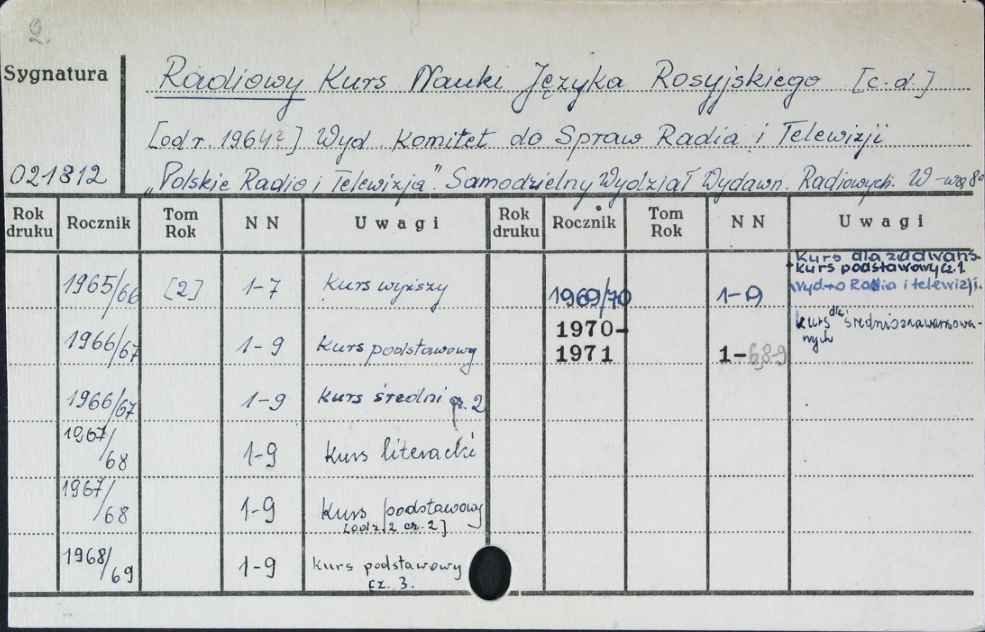 2.
Sygnatura
Radiowy Kurs Nauki Języka Rosyjskiego [c.d.]
[od r. 1964?] Wyd. Komitet do Spraw Radia i Telewizji
021812
„Polskie Radio i Telewizja". Samodzielny Wydział Wydawn. Radiowych. W-wa 8°
Rok druku Rocznik Tom Rok N N Uwagi Rok druku Rocznik Tom Rok N N Uwagi
1965/66 [2] 1-7 Kurs wyższy
1966/67 1-9 Kurs podstawowy
1966/67 1-9 Kurs średni cz. 2
1967/68 1-9 Kurs literacki
1967/68 1-9 Kurs podstawowy
cz. 2]
1968/69 1-9 Kurs podstawowy
cz. 3.
1969/70 1-9 Kurs dla zaawans.
+ Kurs podstawowy cz. 1
Radia i telewizji.
1970-
1971 1-689 kurs dla średniozaawansowa-
nych